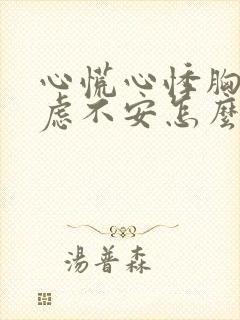 心慌心悸胸
虑不安怎麼
湯普森